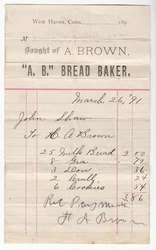 West Haven, Conn. 189
M
Bought of A. BROWN,
"A. B." BREAD BAKER.
March 26, '91
John Shaw
To H A Brown
25 Milk Bread 2 50
8
3 36
2 24
6 Cookies 54
Rec Payment
H A Brown